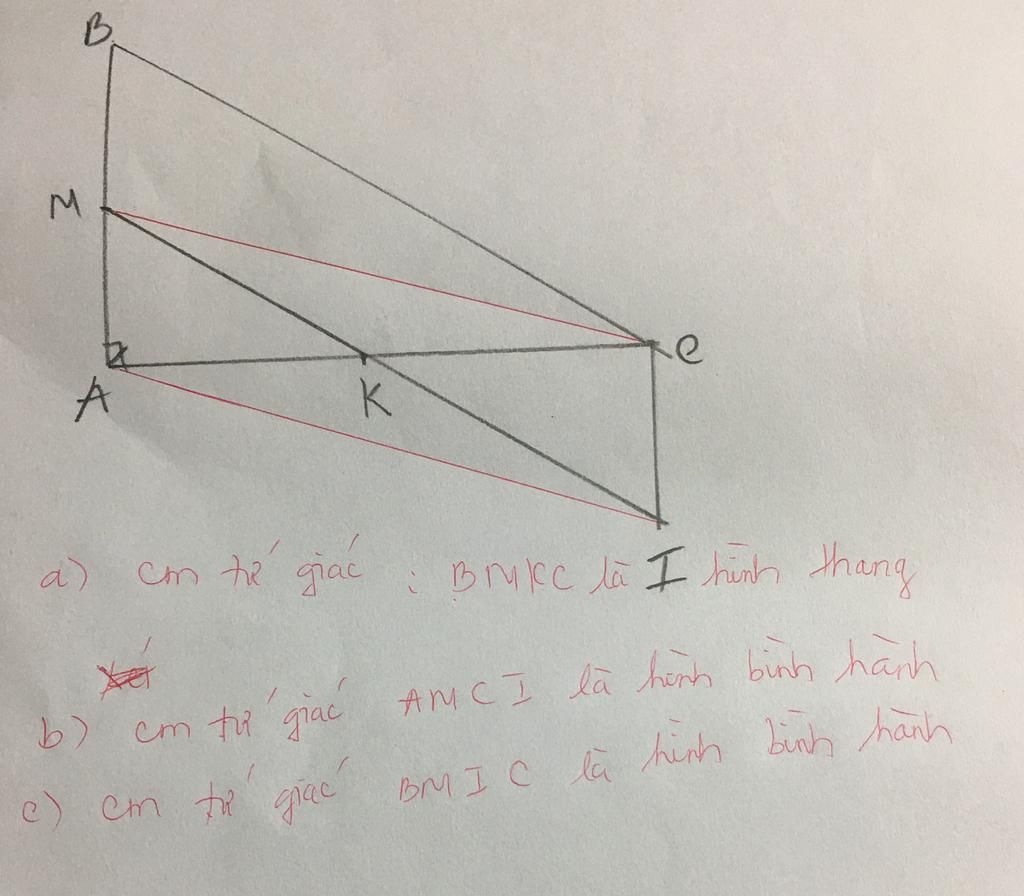 B
M
C
A
K
I
a) cm tứ giác : BMKC là hình thang
b) cm tứ giác AMCI là hình bình hành
c) cm tứ giác BMIC là hình bình hành